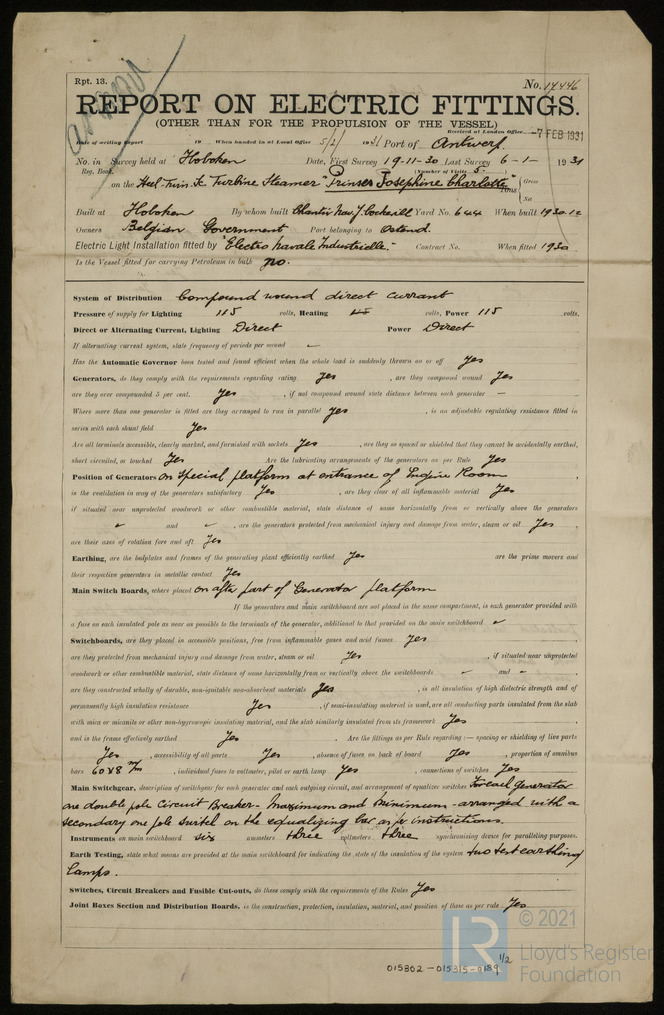 Rpt. 13.
No. 17446
REPORT ON ELECTRIC FITTINGS.
(OTHER THAN FOR THE PROPULSION OF THE VESSEL)
Received at London Office -7 FEB 1931
Date of writing Report 19 When handed in at Local Office 5/2/ 1931 Port of Antwerp
No. in Survey held at Hoboken Date, First Survey 19-11-30 Last Survey 6-1- 1931
Reg. Book. (Number of Visits 5
on the Steel Turbine Steamer "Prinses Josephine Charlotte" Tons { Gross
Net
Built at Hoboken By whom built Chantier Nav. J. Cockerill Yard No. 644 When built 1930.12
Owners Belgian Government Port belonging to Ostend.
Electric Light Installation fitted by "Electro Navale Industrielle." Contract No. When fitted 1930
Is the Vessel fitted for carrying Petroleum in bulk no.
System of Distribution Compound wound direct current
Pressure of supply for Lighting 115 volts, Heating volts, Power 115 volts.
Direct or Alternating Current, Lighting Direct Power Direct
If alternating current system, state frequency of periods per second —
Has the Automatic Governor been tested and found efficient when the whole load is suddenly thrown on or off Yes
Generators, do they comply with the requirements regarding rating Yes , are they compound wound Yes
are they over compounded 5 per cent. Yes , if not compound wound state distance between each generator —
Where more than one generator is fitted are they arranged to run in parallel Yes , is an adjustable regulating resistance fitted in
series with each shunt field Yes
Are all terminals accessible, clearly marked, and furnished with sockets Yes , are they so spaced or shielded that they cannot be accidentally earthed,
short circuited, or touched Yes Are the lubricating arrangements of the generators as per Rule Yes
Position of Generators on Special platform at entrance of Engine Room ,
is the ventilation in way of the generators satisfactory Yes , are they clear of all inflammable material Yes
if situated near unprotected woodwork or other combustible material, state distance of same horizontally from or vertically above the generators
and , are the generators protected from mechanical injury and damage from water, steam or oil Yes ,
are their axes of rotation fore and aft Yes
Earthing, are the bedplates and frames of the generating plant efficiently earthed Yes are the prime movers and
their respective generators in metallic contact Yes
Main Switch Boards, where placed on after part of Generator platform
If the generators and main switchboard are not placed in the same compartment, is each generator provided with
a fuse on each insulated pole as near as possible to the terminals of the generator, additional to that provided on the main switchboard
Switchboards, are they placed in accessible positions, free from inflammable gases and acid fumes Yes ,
are they protected from mechanical injury and damage from water, steam or oil Yes , if situated near unprotected
woodwork or other combustible material, state distance of same horizontally from or vertically above the switchboards and ,
are they constructed wholly of durable, non-ignitable non-absorbent materials Yes , is all insulation of high dielectric strength and of
permanently high insulation resistance Yes , if semi-insulating material is used, are all conducting parts insulated from the slab
with mica or micanite or other non-hygroscopic insulating material, and the slab similarly insulated from its framework Yes ,
and is the frame effectively earthed Yes . Are the fittings as per Rule regarding :— spacing or shielding of live parts
Yes , accessibility of all parts Yes , absence of fuses on back of board Yes , proportion of omnibus
bars 60x8 m/m , individual fuses to voltmeter, pilot or earth lamp Yes , connections of switches Yes
Main Switchgear, description of switchgear for each generator and each outgoing circuit, and arrangement of equalizer switches For each Generator
one double pole Circuit Breaker - Maximum and Minimum - arranged with a
secondary one pole switch on the equalizing bar as per instructions.
Instruments on main switchboard six ammeters three voltmeters three synchronising device for paralleling purposes.
Earth Testing, state what means are provided at the main switchboard for indicating the state of the insulation of the system two test earthing
lamps.
Switches, Circuit Breakers and Fusible Cut-outs, do these comply with the requirements of the Rules Yes
Joint Boxes Section and Distribution Boards, is the construction, protection, insulation, material, and position of these as per rule Yes
© 2021
Lloyd's Register
Foundation
015802-015815-0189 1/2